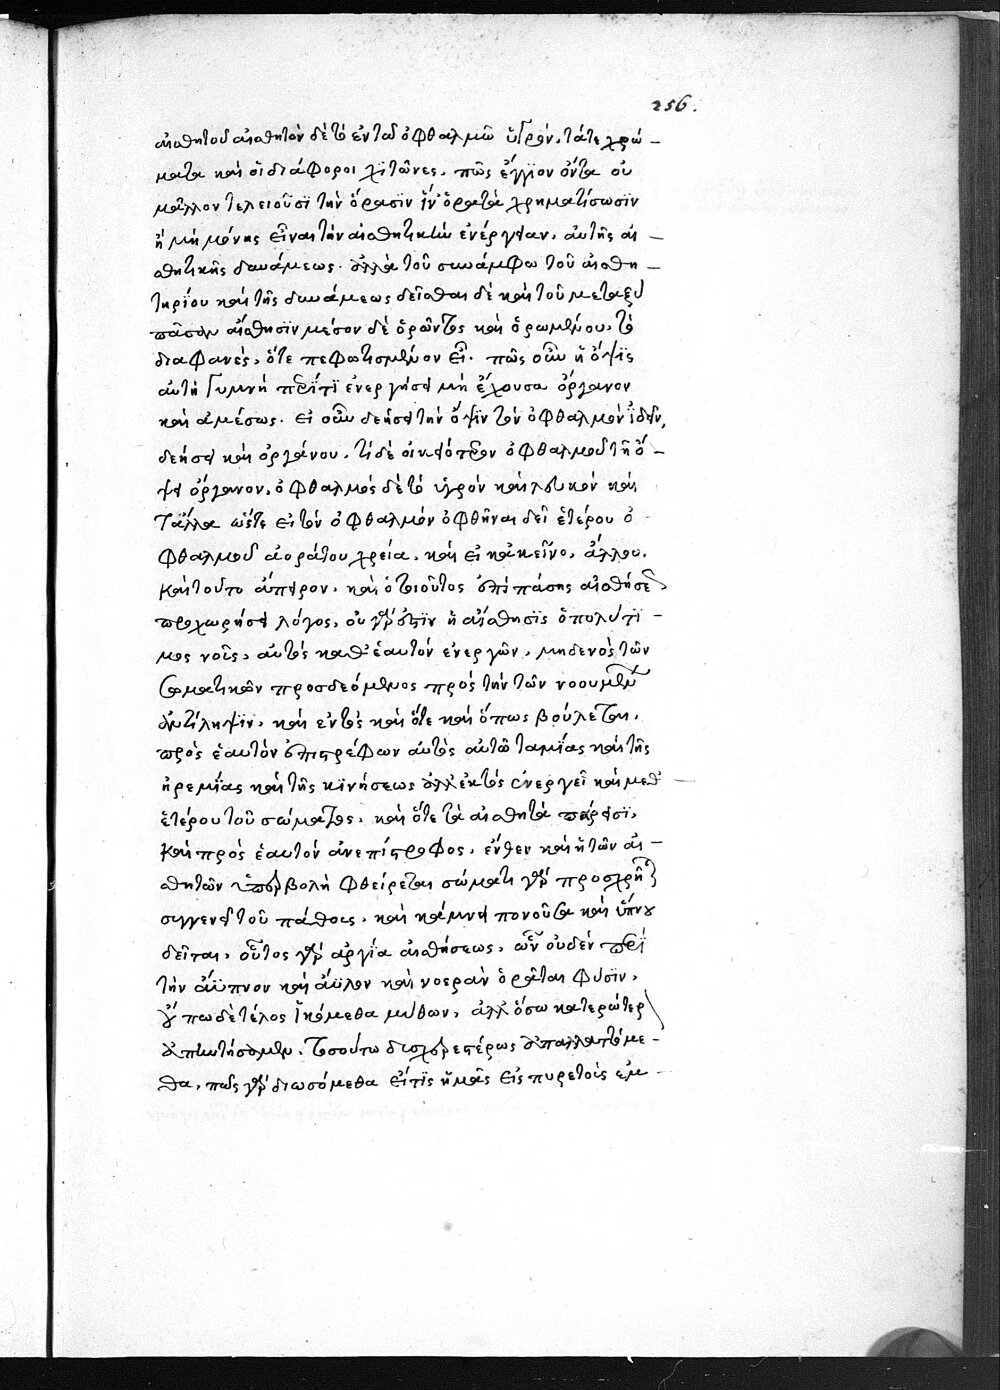 256.
αἰσθητοῦ αἰσθητὸν δὲ τὸ ἐν τῶ ὀφθαλμῶ ὑγρὸν, τά τε χρώ-
ματα καὶ οἱ διάφοροι χϊτῶνες. πῶς ἔγγϊον ὄντα οὐ
μᾶλλον τελειοῦσϊ τὴν ὅρασϊν ἵν' ὁρατὰ χρηματίσωσϊν
ἢ μὴ μόνης εἶναι τὴν αἰσθητικὴν ἐνέργειαν, αὐτῆς αἰ-
σθητικῆς δυνάμεως. ἀλλὰ τοῦ συνάμφω τοῦ αἰσθη-
τηρίου καὶ τῆς δυνάμεως δεῖσθαι δὲ καὶ τοῦ μεταξὺ
πᾶσαν αἴσθησϊν μέσον δὲ ὁρῶντος καὶ ὁρωμένου, τὸ
διαφανὲς, ὅτε πεφωτισμένον εἴη. πῶς οὖν ἡ ὄψϊς
αὐτὴ γυμνὴ περί τϊ ἐνεργήσει μὴ ἔχουσα ὄργανον
καὶ ἀμέσως. εἰ οὖν δεήσει τὴν ὄψϊν τὸν ὀφθαλμὸν ἰδεῖν,
δεήσει καὶ ὀργάνου. τί δὲ οἰκειότερον ὀφθαλμοῦ τῆ ὄ-
ψει ὄργανον, ὀφθαλμὸς δὲ τὸ ὑγρὸν καὶ λευκὸν καὶ
τἄλλα ὥστε εἰ τὸν ὀφθαλμὸν ὀφθῆναι δεῖ ἑτέρου ὀ-
φθαλμοῦ ἀοράτου χρεία, καὶ εἰ κἀκεῖνο, ἄλλου.
καὶ τοῦτο ἄπειρον. καὶ ὁ τοιοῦτος ἐπὶ πάσης αἰσθήσεως
προχωρήσει λόγος, οὐ γάρ ἐστϊν ἡ αἴσθησϊς ὁ πολύτϊ-
μος νοῦς, αὐτὸς καθ' ἑαυτὸν ἐνεργῶν, μηδενὸς τῶν
σωματικῶν προσδεόμενος πρὸς τὴν τῶν νοουμένων
ἀντίληψϊν, καὶ ἐντὸς καὶ ὅτε καὶ ὅπως βούλεται,
πρὸς ἑαυτὸν ἐπιστρέφων αὐτὸς αὐτῶ ταμίας καὶ τῆς
ἠρεμίας καὶ τῆς κϊνήσεως ἀλλ' ἐκτὸς ἐνεργεῖ καὶ μεθ'
ἑτέρου τοῦ σώματος, καὶ ὅτε τὰ αἰσθητὰ πάρεισϊ,
καὶ πρὸς ἑαυτὸν ἀνεπίστροφος, ἔνθεν καὶ ἡ τῶν αἰ-
σθητῶν ὑπερβολὴ φθείρεται σώματι γὰρ προσχρῆται
συγγενεῖ τοῦ πάθους, καὶ κάμνει πονοῦσα καὶ ὕπνου
δεῖται, οὗτος γὰρ ἀργία αἰσθήσεως, ὧν οὐδὲν περὶ
τὴν ἄϋπνον καὶ ἄϋλον καὶ νοερὰν ὁρᾶται φύσϊν,
οὔπω δὲ τέλος ἱκόμεθα μύθων, ἀλλ' ὅσω κατερώτερ
ἀπαντήσομεν, τοσούτω δυσχερεστέρως ἀπαλλαττόμε-
θα, πῶς γὰρ διωσόμεθα εἴ τϊς ἡμᾶς εἰς πυρετοὺς ἐμ-